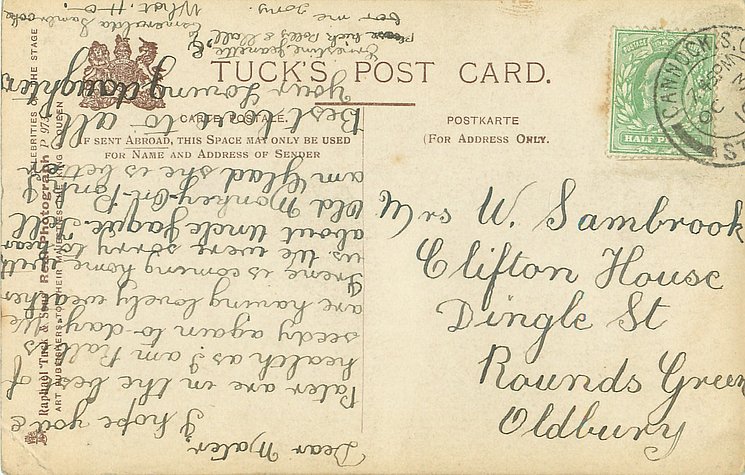 TUCK'S POST CARD.
CARTE POSTALE.
POSTKARTE
IF SENT ABROAD, THIS SPACE MAY ONLY BE USED
FOR NAME AND ADDRESS OF SENDER
(FOR ADDRESS ONLY.
HALF P
CANNOCK S.O
7 45PM
OC
ST
Mrs W. Sambrook
Clifton House
Dingle St
Rounds Green
Oldbury
Dear Mater,
I hope you &
Pater are in the best of
health as I am
seedy again to-day. We
are having lovely weather
Irene is coming home with
us We were sorry to hear
about Uncle Jaque. Tell
Old Monkey-On-P. I
am Glad she is better
Best love to all
Your Loving daughter
Esmeralda Sambrook
What. Ho.
Ernestine Jeanette
Please kick Polly &
for me
Raphael Tuck & Sons' Real Photograph P
CELEBRITIES OF THE STAGE
ART PUBLISHERS TO THEIR MAJESTIES THE KING & QUEEN